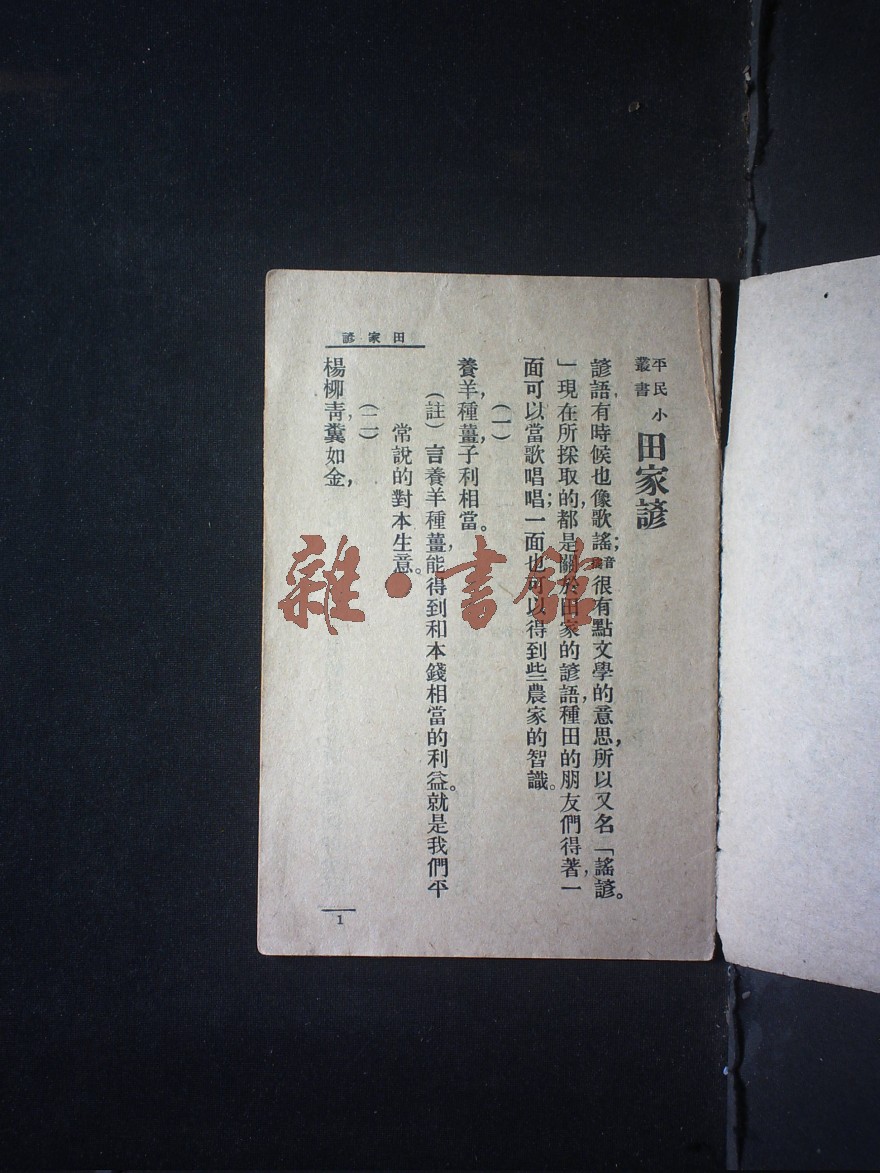 平民小
叢書
田家諺
諺語有時候也像歌謠；很有點文學的意思，所以又名「謠諺。
」現在所採取的，都是關於田家的諺語，種田的朋友們得著，一
面可以當歌唱唱；一面也可以得到些農家的智識。
（一）
養羊，種薑，子利相當。
（註）言養羊種薑，能得到和本錢相當的利益。就是我們平
常說的對本生意。
（二）
楊柳青，糞如金，
田家諺
1
雜·書館